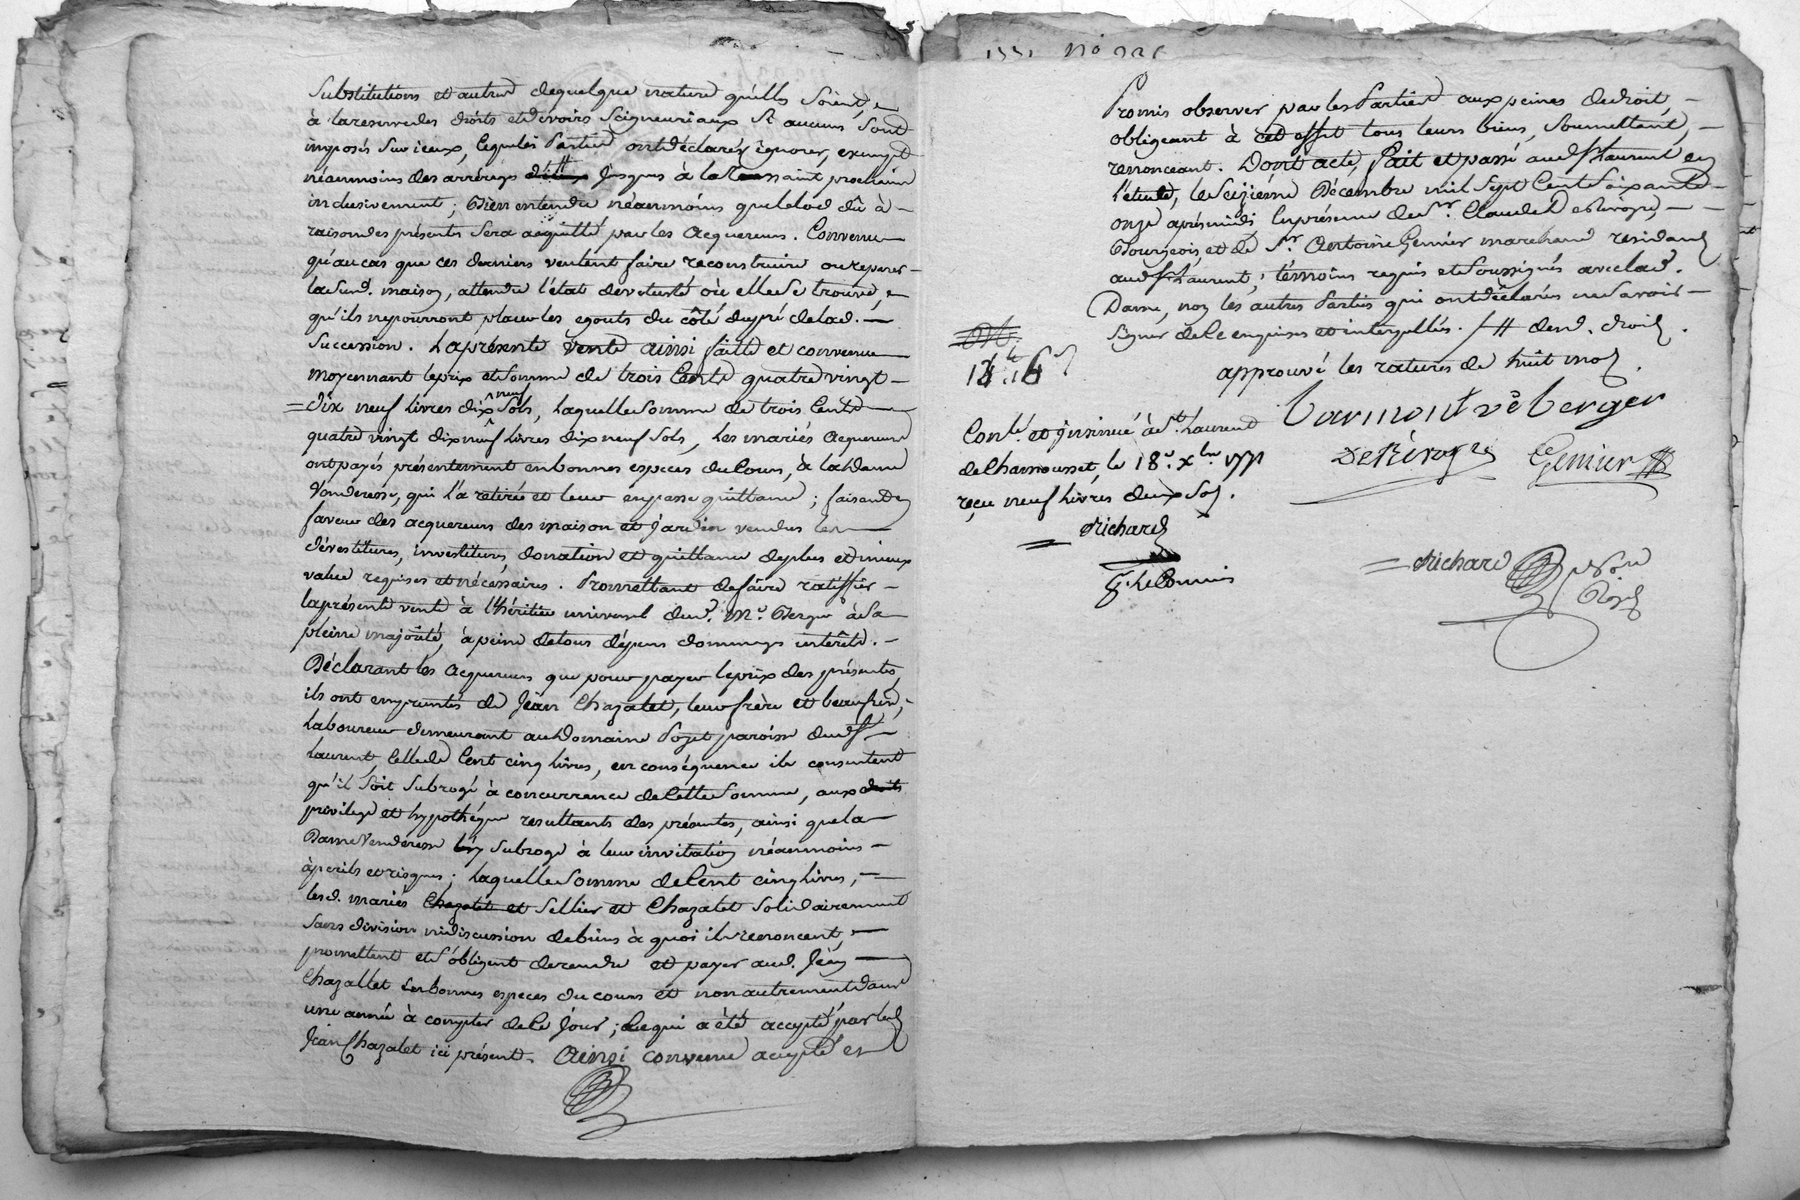 Substitutions et autres dequelque nature qu'ells soient,
à lareserve des droits et devoirs Seigneuriaux Si aucuns Sont
imposés Sur iceux, lequels Parties ont déclarés ignorer, exempt
néanmoins des arrérages jusques à la Toussaint prochaine
inclusivement; Bien entendu néanmoins que le lod dû à
raison des présentes Sera acquitté par les acquereurs. Convenu
qu'au cas que ces derniers veulent faire reconstruire ou reparer
lasusd. maison, attendu l'état de vetusté où elle Se trouve,
qu'ils ne pourront placer les egouts du côté du pré de lad.
Succession. La présente vente ainsi faitte et convenue
moyennant le prix et Somme de trois Cents quatre vingt
= Dix neuf livres dix neuf Sols, laquelle Somme de trois Cents
quatre vingt dix neuf livres dix neuf Sols, les mariés acquereurs
ont payés présentement en bonnes especes du Cours, à lad. Dame
Venderesse, qui l'a retirée et leur en passe quittance; faisant en
faveur des acquereurs des maison et jardin vendus les
dévestitures, investitures, donation et quittance de plus et mieux
value requises et nécessaires. Promettant de faire ratiffier
la présente vente à l'héritier universel dud. Mr. Berger à Sa
pleine majorité, à peine de tous dépens dommages intérêts.
Déclarant les acquereurs que pour payer le prix des présentes,
ils ont empruntés de Jean Chazalet, leur frère et beaufrère,
Laboureur demeurant au Domaine Pozet paroisse dud. St
Laurent, Celle de Cent cinq livres, en conséquence ils consentent
qu'il Soit Subrogé à concurrence de Cette Somme, aux droits
privilege et hypothéque resultants des présentes, ainsi que la
Dame Venderesse l'y Subroge à leur invitation néanmoins
à perils et risques; laquelle Somme de Cent cinq livres,
lesd. mariés Chazalet et Sellier et Chazalet Solidairement
Sans division ni discussion de biens à quoi ils renoncent,
promettent et S'obligent de rendre et payer aud. Jean
Chazallet en bonnes especes du cours et non autrement dans
une année à compter de Ce Jour; Ce qui a été accepté par led.
Jean Chazalet ici présent. Ainsi convenu accepté et
Promis observer par les Parties aux peines de droit,
obligeant à cet effet tous leurs biens, Soumettant,
renonceant. Dont acte, fait et passé aud. St Laurent en
l'étude, le Seizieme Décembre mil Sept Cent Soixante
onze aprés midi en présence de Sr. Claude Derivoyre,
Bourgeois, et de Sr. Antoine Genier marchand residants
aud. St Laurent, témoins requis et Soussignés avec lad.
Dame, non les autres Parties qui ont déclarés ne Savoir
Signer de Ce enquises et interpellés. # dend. droits.
approuvé les ratures de huit mots.
Varmont ve berger
DeRivoyre Genier
18 16
Conlé. et insinué à St. Laurent
de Chamousset, le 18e. xbre 1771
reçu neuf livres deux Sols.
Richard
= Richard